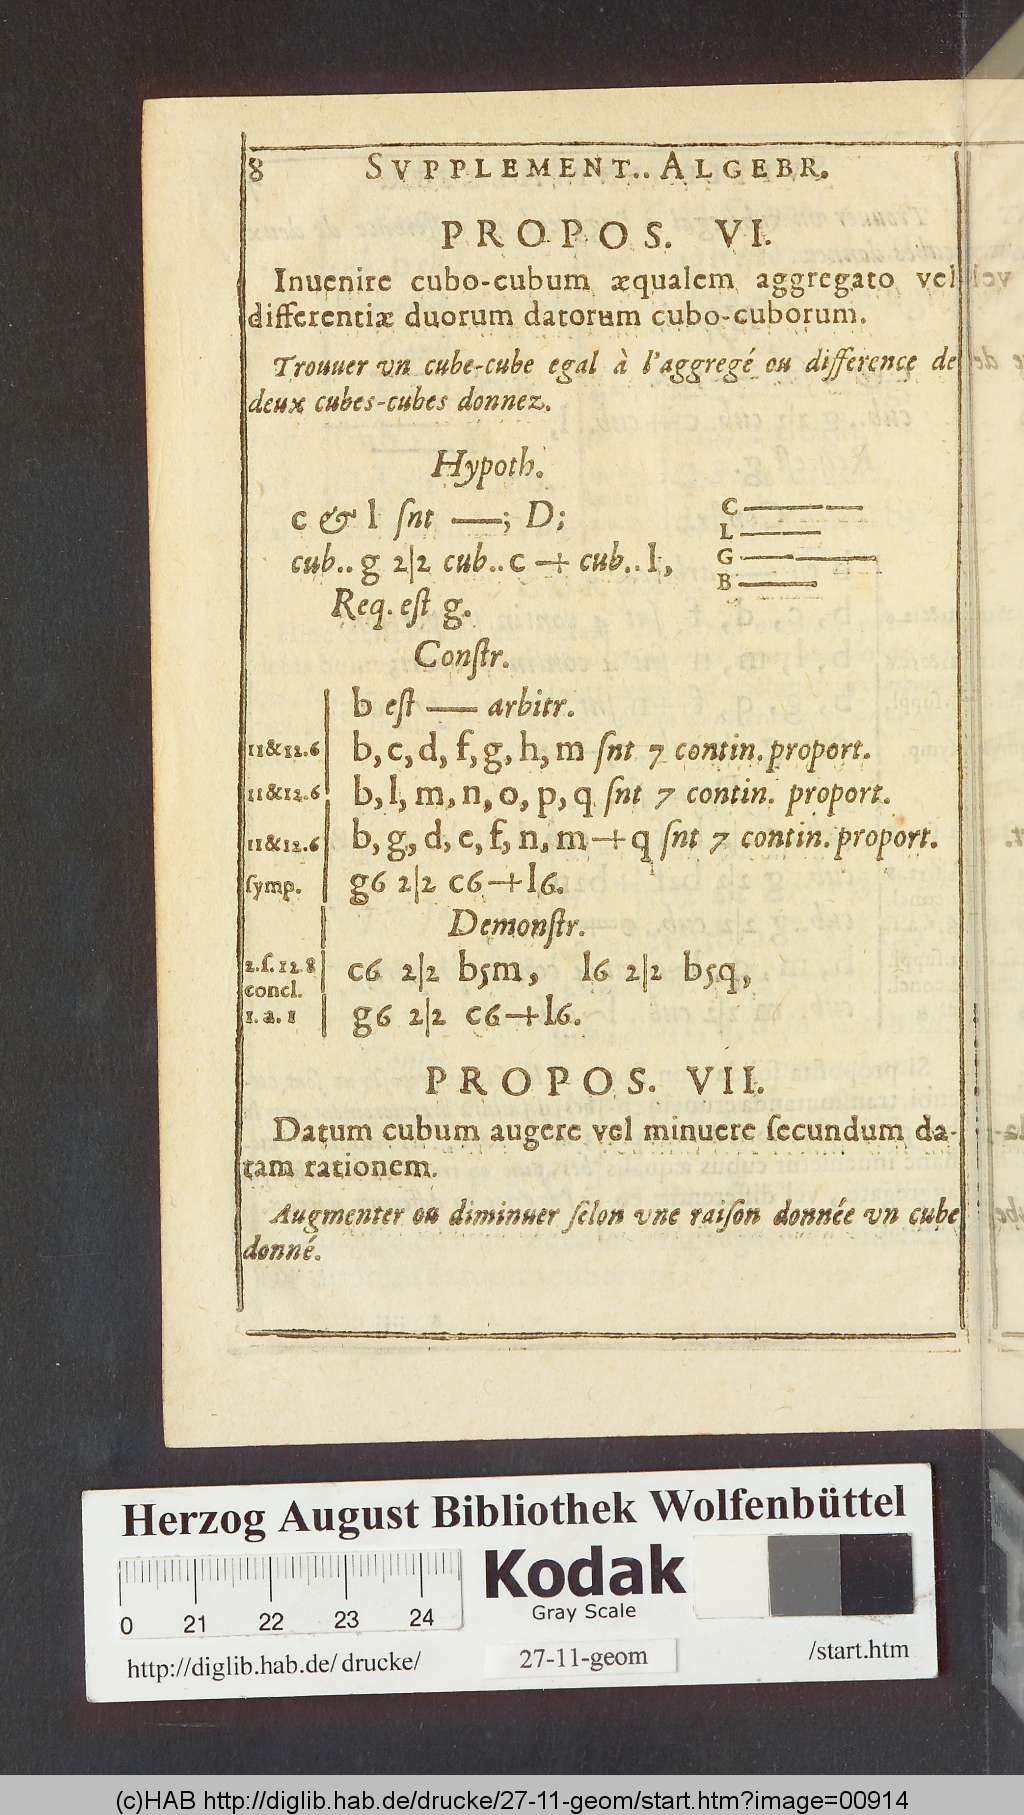 8 SVPPLEMENT.. ALGEBR.
PROPOS. VI.
Inuenire cubo-cubum æqualem aggregato vel
differentiæ duorum datorum cubo-cuborum.
Trouuer vn cube-cube egal à l'aggregé ou difference de
deux cubes-cubes donnez.
Hypoth.
c & l ſnt —; D;
cub.. g 2|2 cub.. c + cub.. l,
Req. eſt g.
C
L
G
B
Conſtr.
b eſt — arbitr.
11&12.6 b, c, d, f, g, h, m ſnt 7 contin. proport.
11&12.6 b, l, m, n, o, p, q ſnt 7 contin. proport.
11&12.6 b, g, d, e, f, n, m+q ſnt 7 contin. proport.
ſymp. g6 2|2 c6+l6.
Demonſtr.
2.ſ.12.8 c6 2|2 b5m, l6 2|2 b5q,
concl.
1.a.1 g6 2|2 c6+l6.
PROPOS. VII.
Datum cubum augere vel minuere ſecundum da-
tam rationem.
Augmenter ou diminuer ſelon vne raiſon donnée vn cube
donné.
Herzog August Bibliothek Wolfenbüttel
0 21 22 23 24
Kodak
Gray Scale
http://diglib.hab.de/drucke/ 27-11-geom /start.htm
(c)HAB http://diglib.hab.de/drucke/27-11-geom/start.htm?image=00914